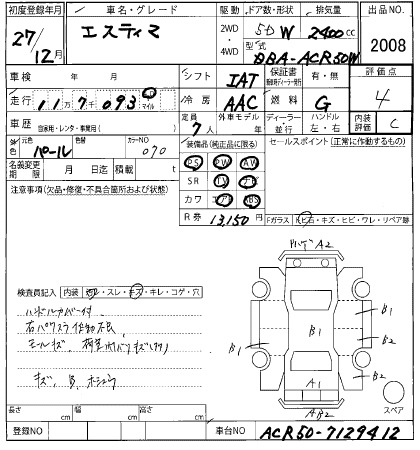 初度登録年月
車名・グレード
駆動
ドア数・形状
排気量
出品NO.
27/12月
エスティマ
2WD ・ 4WD
5D W
2400cc
2008
型式
DBA-ACR50W
車検 年 月
シフト
IAT
保証書
有・無
評価点
4
走行 11万7千093 km マイル
冷房
AAC
燃料
G
車歴 自家用・レンタ・事業用( )
定員
7人
外車モデル年
ディーラー・並行
ハンドル
左・右
内装評価
C
外色
元色
パール
色替
カラーNO
070
装備品(純正品に限る)
セールスポイント(正常に作動するもの)
名義変更期限 月 日迄
積載 t
PS PW AW
SR TV ナビ
注意事項(欠品・修復・不具合箇所および状態)
カワ エアB ABS
R券
13,150円
Fガラス
ヒ石・キズ・ヒビ・ワレ・リペア跡
バンパ A2
検査員記入
内装
・スレ・キズ・キレ・コゲ・穴
ハンドルカバー付
右パワスラ作動不良
B1
B1
B1
B2
B2
キズ、B、
A1
AB2
スペア
長さ cm
幅 cm
高さ cm
登録NO
車台NO
ACR50-7129412